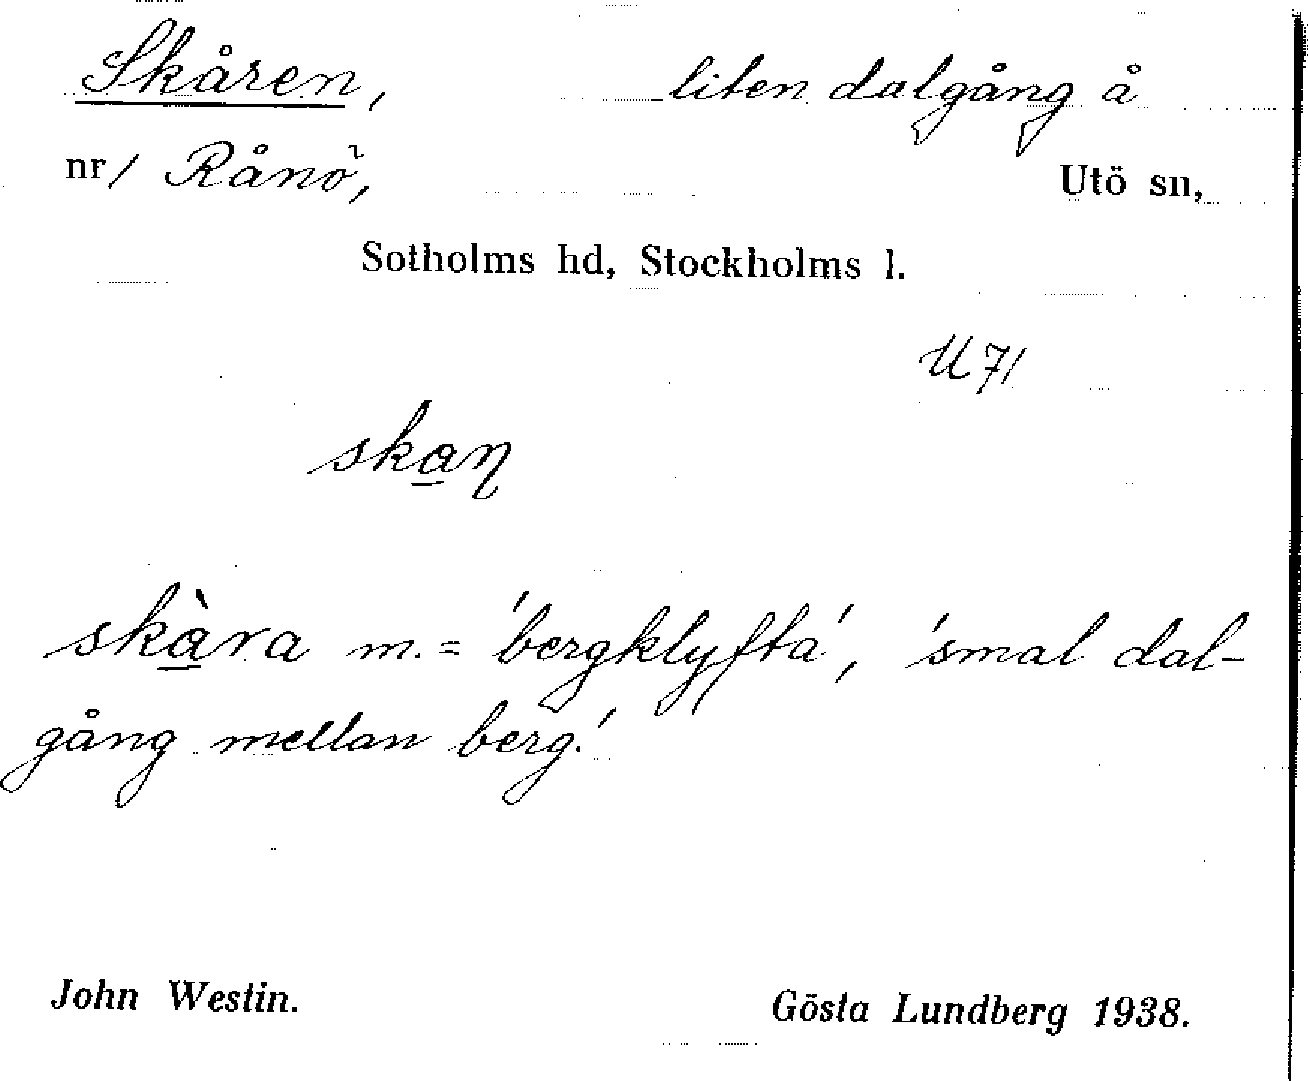 Skåren, liten dalgång å
nr/ Rånö, Utö sn,
Sotholms hd, Stockholms l.
U 7/
ska̲ɳ
skà̲ra m. = 'bergklyfta', 'smal dal-
gång mellan berg.'
John Westin. Gösta Lundberg 1938.